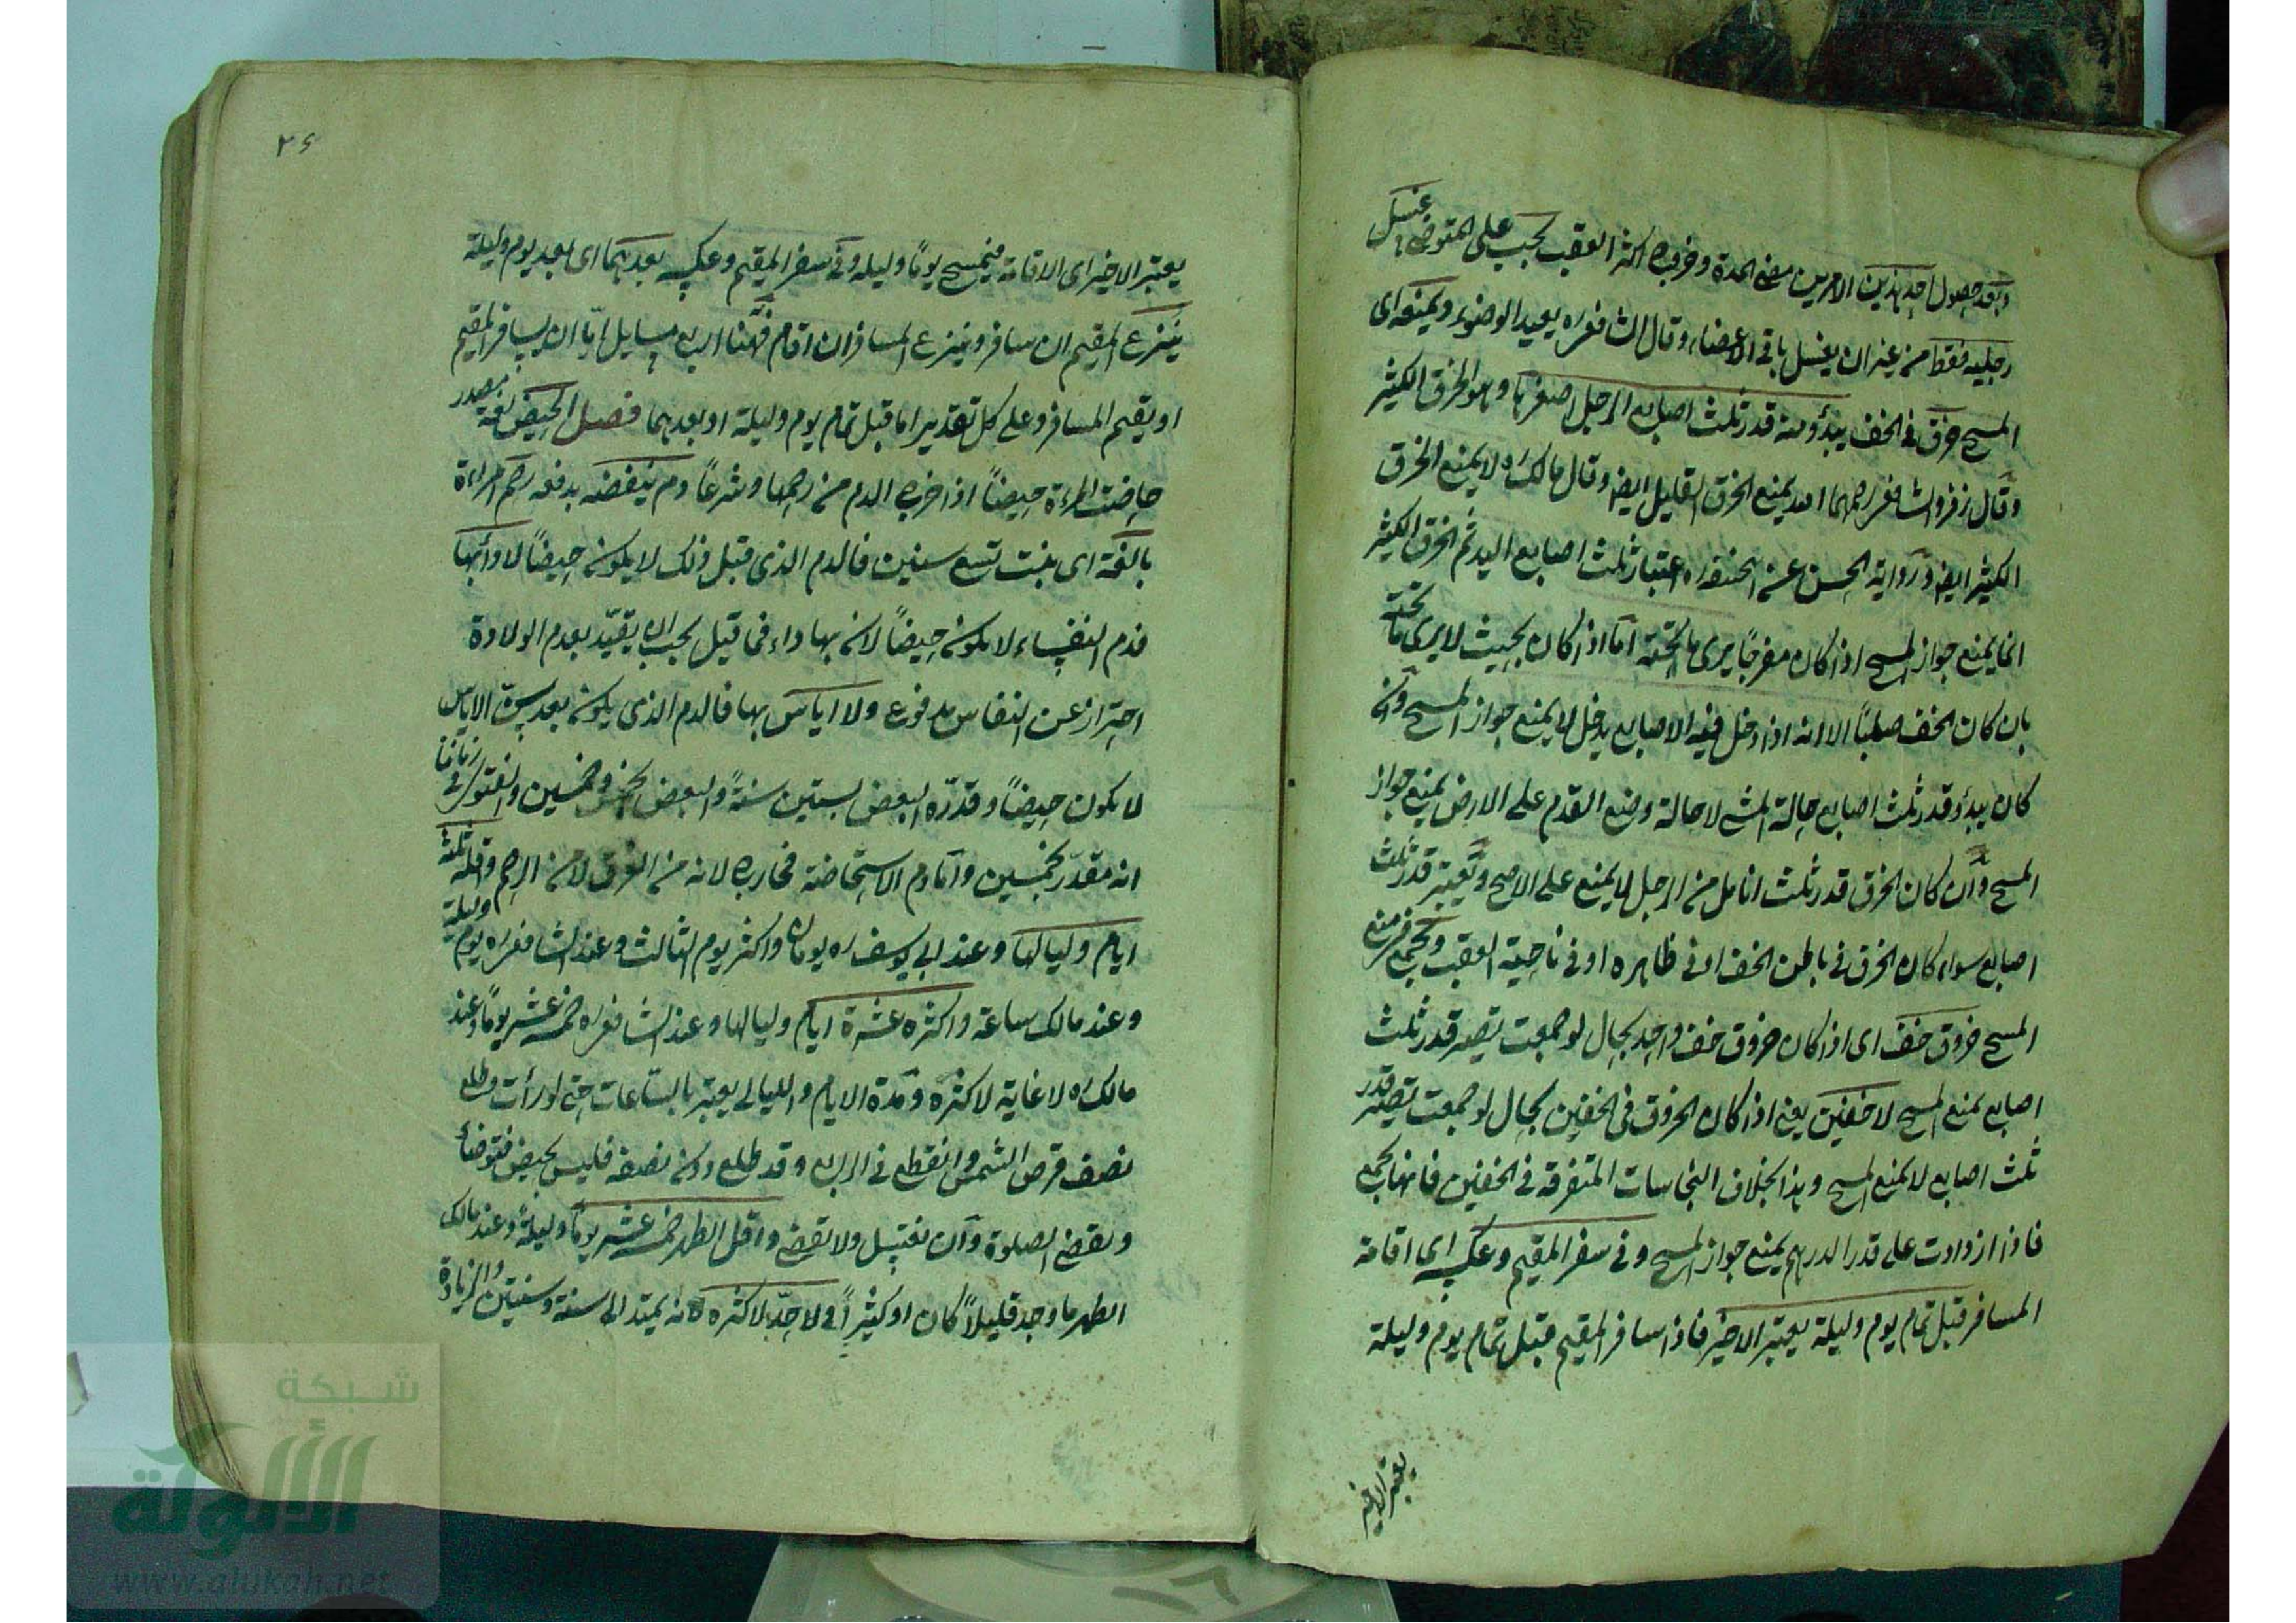 وبعد حصول احد هذين الامرين مضي المدة وخروج اكثر العقب يجب على المتوضئ غسل
رجليه فقط من غير ان يغسل باقي الاعضاء وقال الشافعي ره يعيد الوضوء ويمنعه اى
المسح خرق في الخف يبدؤ منه قدر ثلث اصابع الرجل اصغرها وهو الخرق الكثير
وقال زفر والشافعي رحمهما الله يمنع الخرق القليل ايضا وقال مالك ره لا يمنع الخرق
الكثير ايضا ورواية الحسن عن ابي حنيفة ره اعتبار ثلث اصابع اليد ثم الخرق الكثير
انما يمنع جواز المسح اذا كان منفرجا يرى ما تحته اما اذا كان بحيث لا يرى ما تحته
بان كان الخف صلبا الا انه اذا دخل فيه الاصابع يدخل لا يمنع جواز المسح وان
كان يبدؤ قدر ثلث اصابع حالة المشي لا حالة وضع القدم على الارض يمنع جواز
المسح وان كان الخرق قدر ثلث انامل من الرجل لا يمنع على الاصح وتعتبر قدر ثلث
اصابع سواء كان الخرق في باطن الخف او في ظاهره او في ناحية العقب ويجمع في منع
المسح خروق خف اى اذا كان خروق خف واحد بحال لو جمعت يصير قدر ثلث
اصابع يمنع المسح لا خفين يعني اذا كان الخروق في الخفين بحال لو جمعت تصير قدر
ثلث اصابع لا يمنع المسح وهذا بخلاف النجاسات المتفرقة في الخفين فانها يجمع
فاذا ازدادت على قدر الدرهم يمنع جواز المسح وفي سفر المقيم وعكسه اى اقامة
المسافر قبل تمام يوم وليلة يعتبر الاخير فاذا سافر المقيم قبل تمام يوم وليلة
يعتبر الاخير
٢٦
يعتبر الاخير اى الاقامة فيمسح يوما وليلة وفي سفر المقيم وعكسه بعدهما اى بعد يوم وليلة
ينزع المقيم ان سافر وينزع المسافر ان اقام فههنا اربع مسايل اما ان يسافر المقيم
او يقيم المسافر وعلى كل تقدير اما قبل تمام يوم وليلة او بعدهما فصل الحيض لغة مصدر
حاضت المرءة حيضا اذا خرج الدم من رحمها وشرعا دم ينفضه يدفعه رحم امراءة
بالغة اى بنت تسع سنين فالدم الذى قبل ذلك لا يكون حيضا لا داء بها
فدم النفساء لا يكون حيضا لان بها داء فما قيل يجب ان يقيد بعدم الولادة
احتراز عن النفاس مدفوع ولا اياس بها فالدم الذى يكون بعد سن الاياس
لا يكون حيضا وقدره البعض بستين سنة والبعض بخمس وخمسين والفتوى في زماننا
انه مقدر بخمسين واما دم الاستحاضة فخارج لانه من العرق لا من الرحم واقله ثلثة
ايام ولياليها وعند ابي يوسف ره يومان واكثر يوم الثالث وعند الشافعي ره يوم وليلة
وعند مالك ساعة واكثره عشرة ايام ولياليها وعند الشافعي ره خمسة عشر يوما وعند
مالك ره لا غاية لاكثره ومدة الايام والليالي يعتبر بالساعات حتى لو رأت وطلع
نصف قرص الشمس وانقطع في الرابع وقد طلع دون نصفه فليس بحيض فتوضأ
وتقضي الصلوة وان تغتسل ولا تقضي واقل الطهر خمسة عشر يوما وليلة وعند مالك
الطهر ما وجد قليلا كان او كثيرا ولا حد لاكثره لانه يمتد الى سنة وسنتين والزيادة
شبكة
الألوكة
www.alukah.net